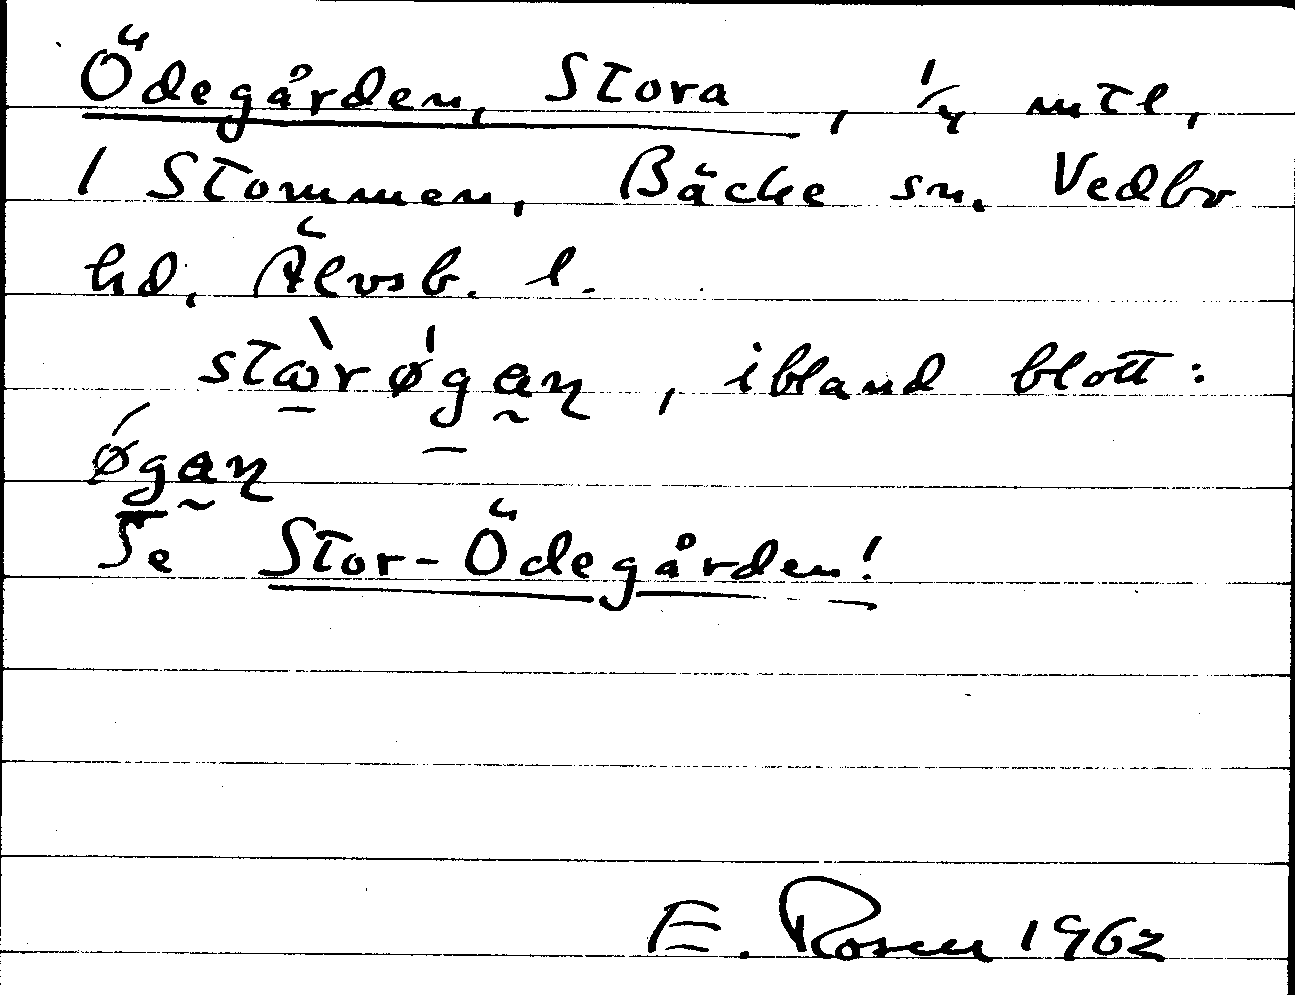 Ödegården, Stora, 1/4 mtl,
1 Stommen, Bäcke sn. Vedbo
hd, Älvsb. l.
stὼ̲rǿg̲a̰ɳ, ibland blott:
ǿg̲a̰ɳ
Se Stor-Ödegården!
E. Rosen 1962